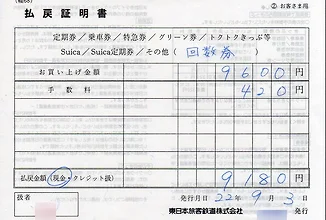 ② お客さま用
払戻証明書
定期券／乗車券／特急券／グリーン券／トクトクきっぷ等
Suica／Suica定期券／その他（ 回数券 ）
お買い上げ金額 9600 円
手数料 420 円
円
払戻金額（現金・クレジット扱） 9180 円
扱者 発行月日 22年9月3日
東日本旅客鉄道株式会社